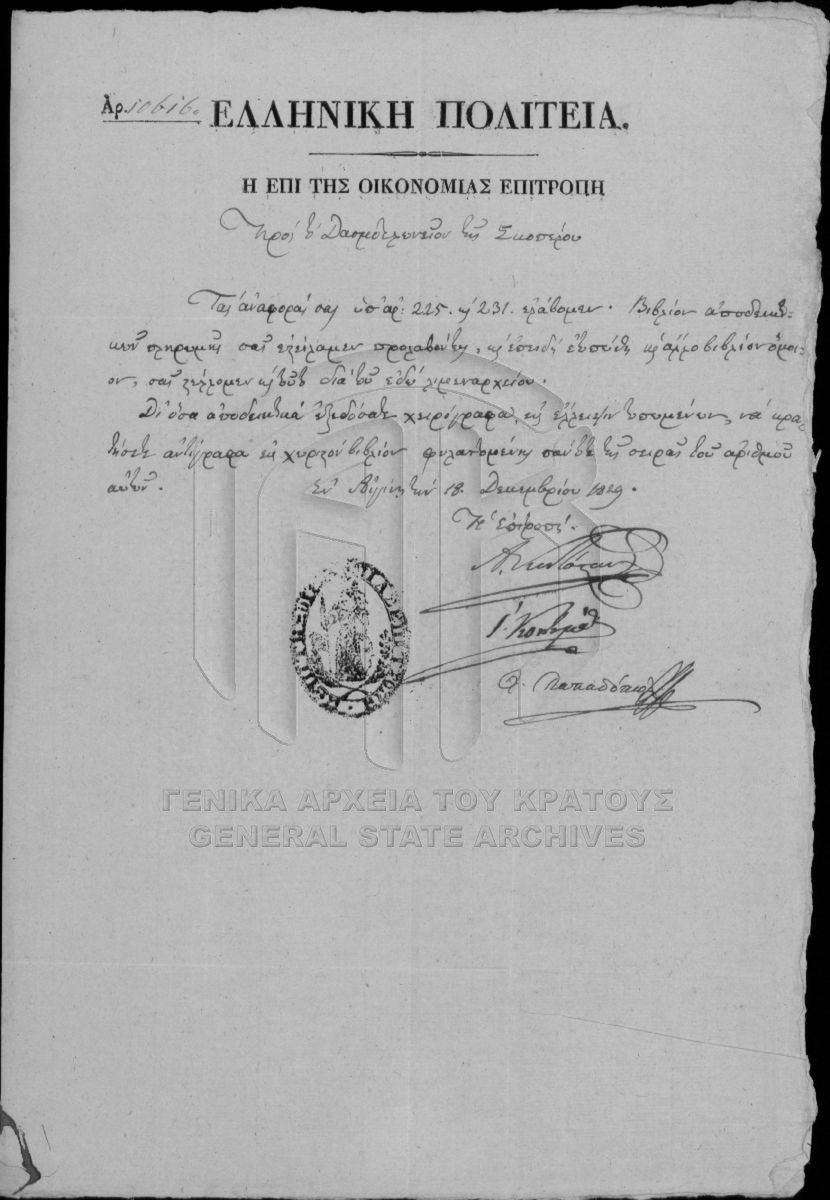 Ἀρ. 10616.
ΕΛΛΗΝΙΚΗ ΠΟΛΙΤΕΙΑ.
Η ΕΠΙ ΤΗΣ ΟΙΚΟΝΟΜΙΑΣ ΕΠΙΤΡΟΠΗ
Πρὸς τὸ Δασμοτελωνεῖον τῆς Σκοπέλου
Τὰς ἀναφοράς σας ὑπ' ἀρ: 225. καὶ 231. ἐλάβομεν. Βιβλίον ἀποδεικτι-
κῶν πληρωμῆς σᾶς ἐστείλαμεν προλαβόντως, καὶ ἐπειδὴ καὶ ἄλλο βιβλίον ὅμοι-
ον, σᾶς στέλλομεν καὶ τοῦτο διὰ τοῦ ἐδῶ λιμεναρχείου.
Δι' ὅσα ἀποδεικτικὰ ἐξεδόσατε χειρόγραφα, εἰς ἔλλειψιν τυπωμένων, νὰ κρα-
τήσετε ἀντίγραφα εἰς χωριστὸν βιβλίον φυλαττομένης πάντοτε τῆς σειρᾶς τοῦ ἀριθμοῦ
αὐτῶν. Ἐν Αἰγίνῃ τὴν 18. Δεκεμβρίου 1829.
Ἡ Ἐπιτροπή.
Α. Κοντόσταυλος
Παπαδόπουλος
ΓΕΝΙΚΑ ΑΡΧΕΙΑ ΤΟΥ ΚΡΑΤΟΥΣ
GENERAL STATE ARCHIVES